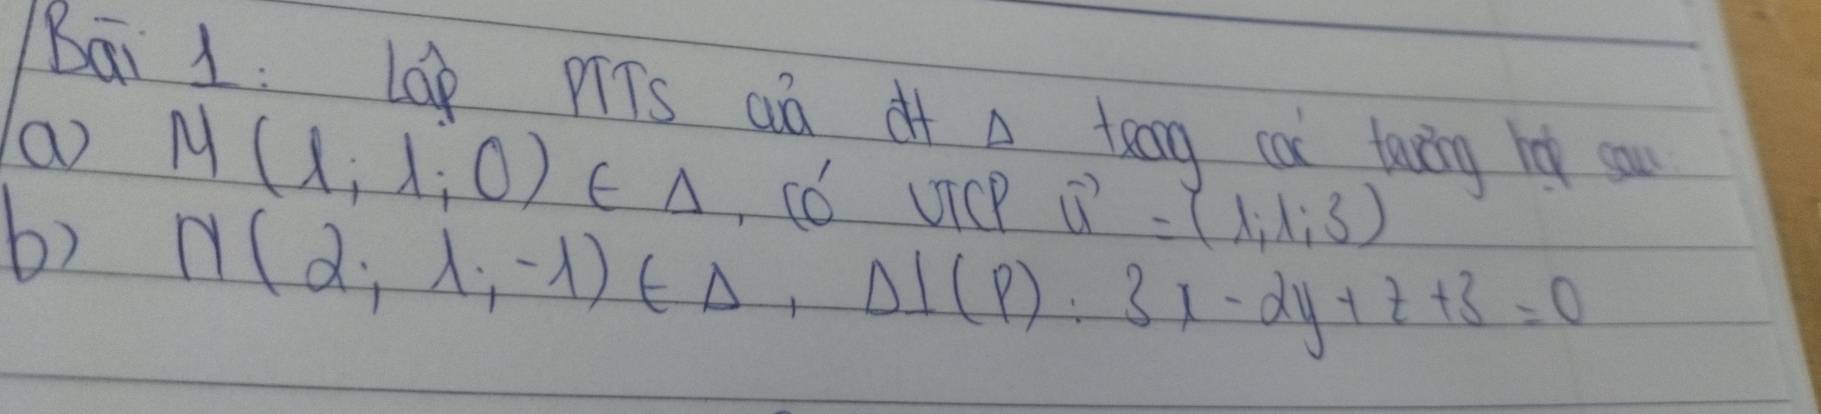 Bài 1: Lập PTTS của đt Δ trong các trường hợp sau:
a) M(1; 1; 0) ∈ Δ, có VTCP u⃗ = (1; 1; 3)
b) M(2; 1; -1) ∈ Δ, Δ⊥(P): 3x - 2y + z + 3 = 0